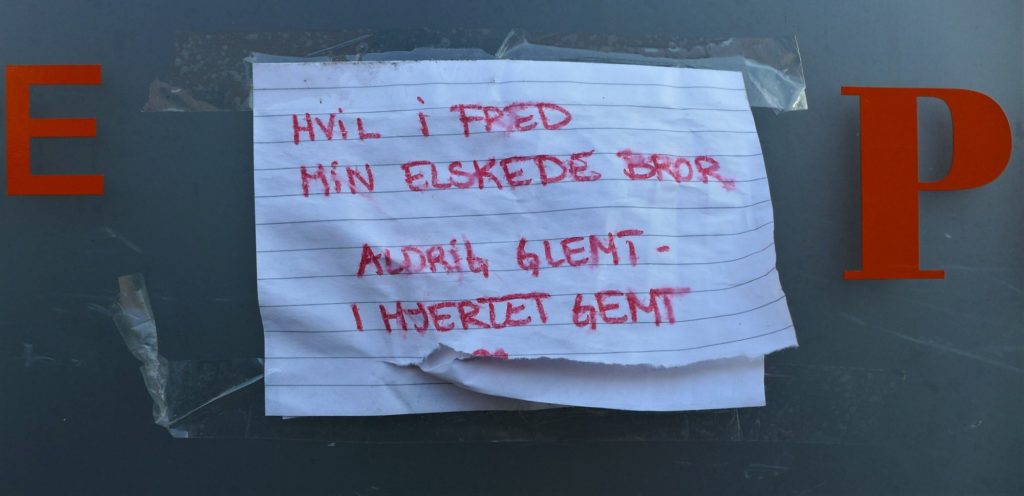 E
HViL i FRED
MiN ELSKEDE BROR.
ALDRiG GLEMT -
I HJERTET GEMT
P